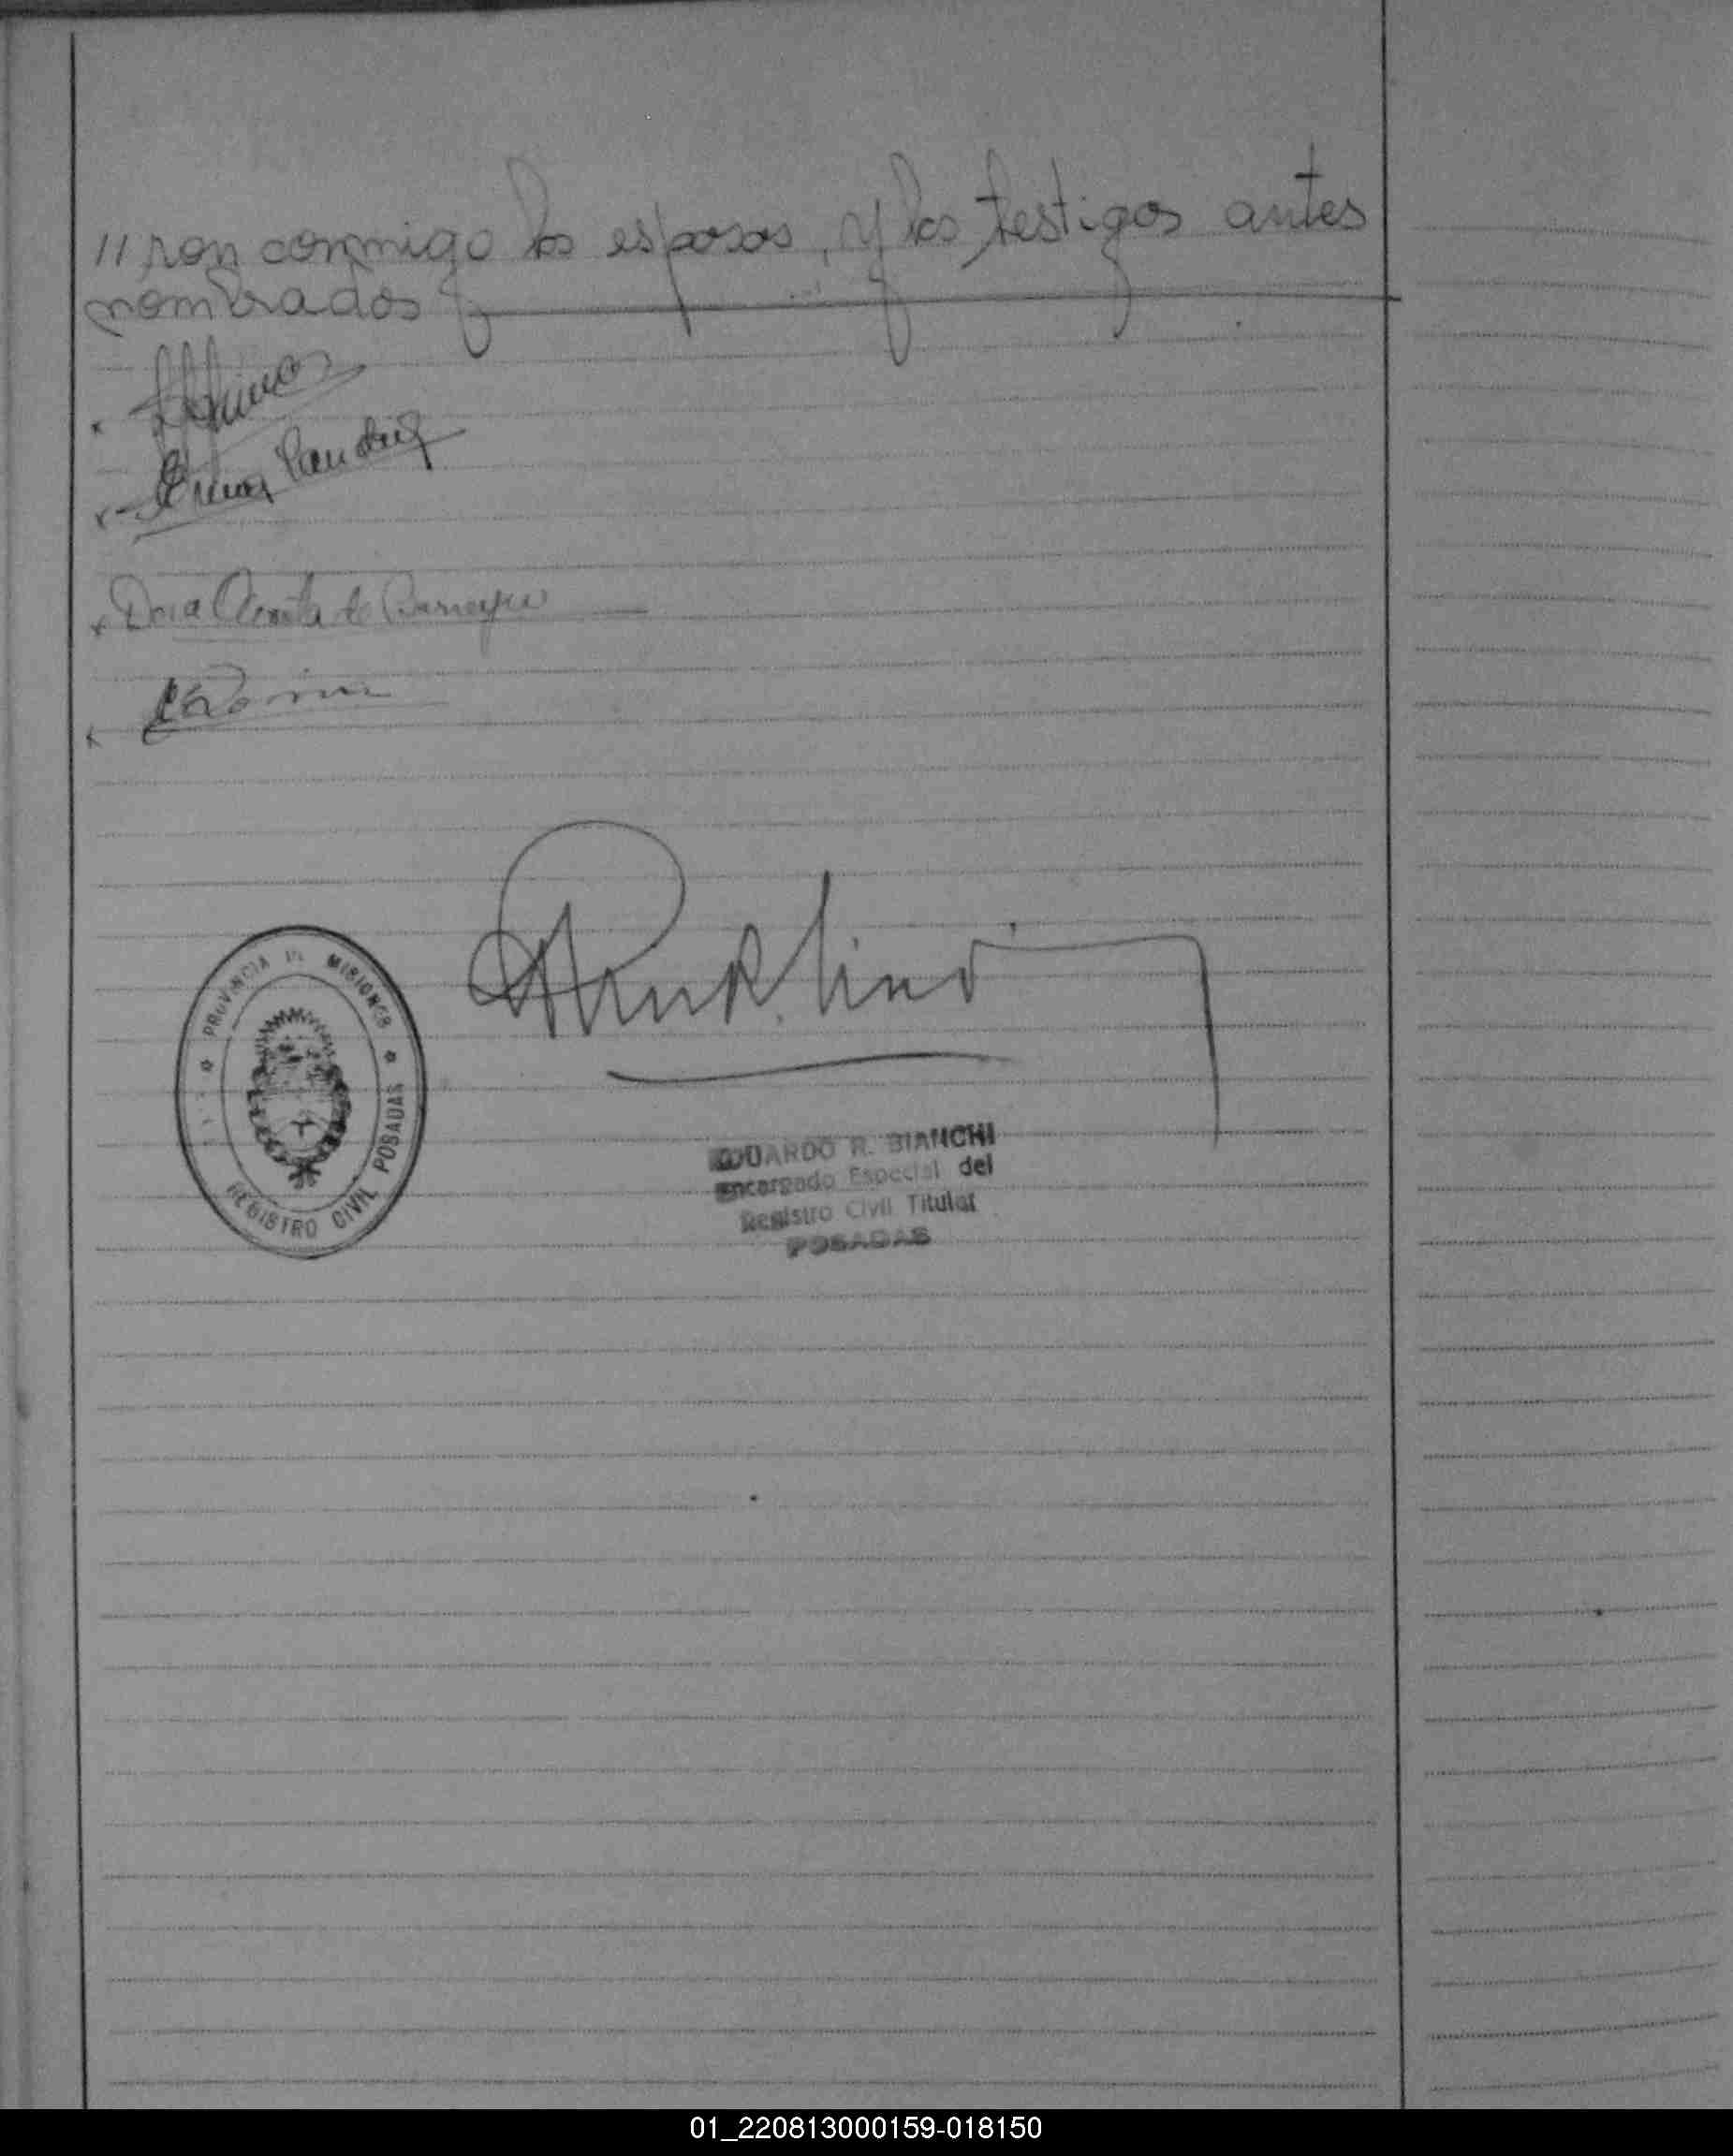 //ron conmigo los esposos, y los testigos antes
nombrados
Dora Acosta de
PROVINCIA DE MISIONES
REGISTRO CIVIL POSADAS
EDUARDO R. BIANCHI
Encargado Especial del
Registro Civil Titular
POSADAS
01_220813000159-018150